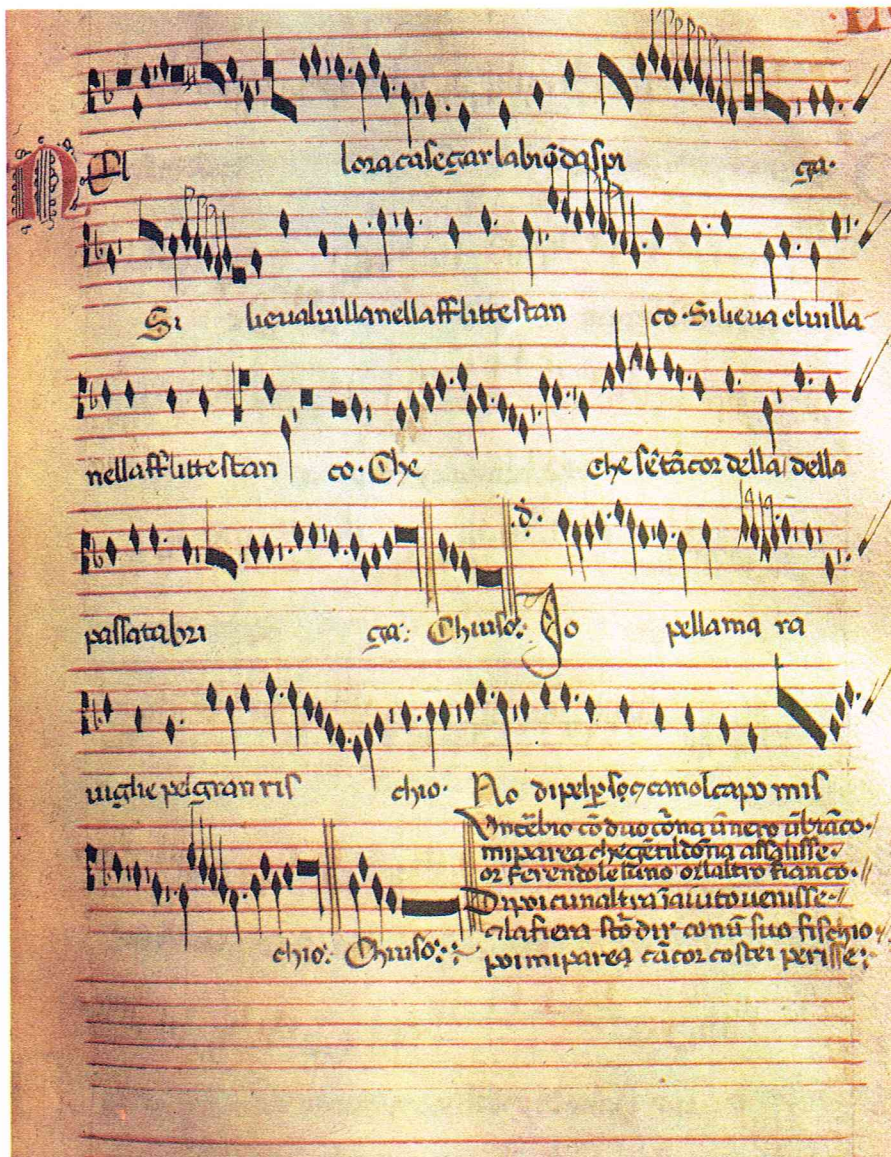 Nel lora ca segar la biōda spi ga.
Si lieva luilla nella fflitte stan co. Si lieva el uilla
nella fflitte stan co. Che Che sētācor della della
passata bri ga: Chiuso: Jo .d. pella ma ra
uiglie pel gran ris chio. No di pel camol capo mis
chio: Chiuso:
Un cēbio cō duo cōna ū nero ū biāco.
mi parea che gētil dōna assalisse.
or ferendo le luno or laltro fianco.
Di poi cunaltra ī aiuto uenisse.
alafiera stō dir con ū suo fischio
poi mi parea cācor costei perisse: